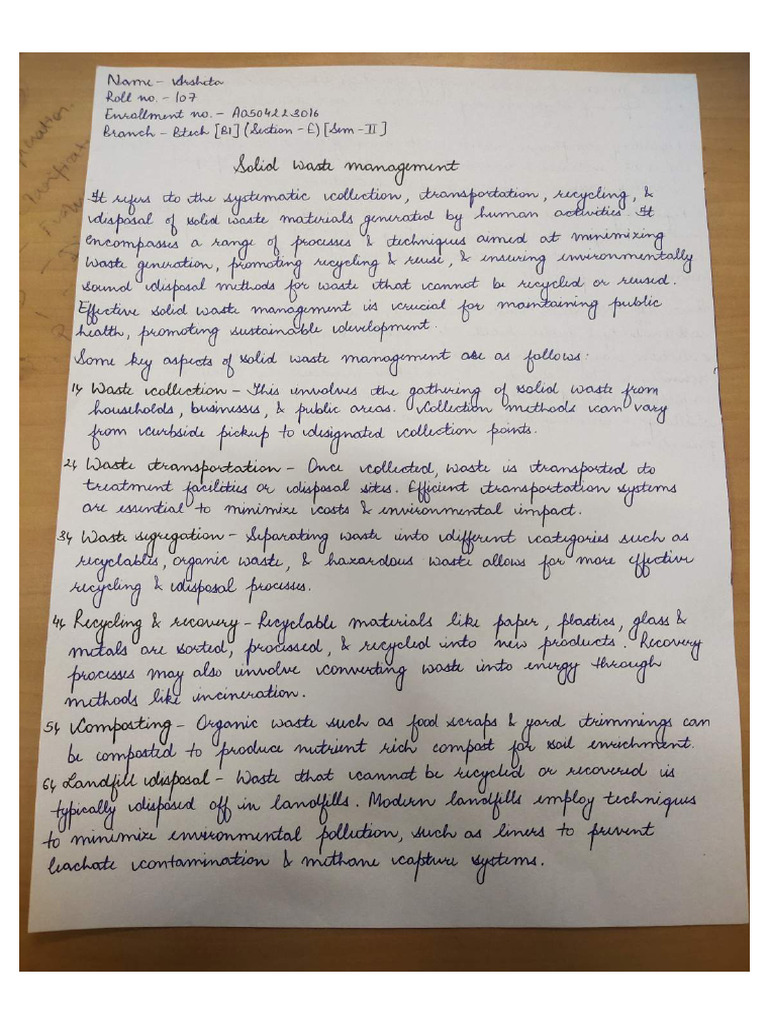 Name - Arshita
Roll no. - 107
Enrollment no. - A0504223016
Branch - Btech [BI] (Section - E) [Sem - II]
Solid waste management
It refers to the systematic collection, transportation, recycling, &
disposal of solid waste materials generated by human activities. It
encompasses a range of processes & techniques aimed at minimizing
waste generation, promoting recycling & reuse, & ensuring environmentally
sound disposal methods for waste that cannot be recycled or reused.
Effective solid waste management is crucial for maintaining public
health, promoting sustainable development.
Some key aspects of solid waste management are as follows:
1) Waste collection - This involves the gathering of solid waste from
households, businesses, & public areas. Collection methods can vary
from curbside pickup to designated collection points.
2) Waste transportation - Once collected, waste is transported to
treatment facilities or disposal sites. Efficient transportation systems
are essential to minimize costs & environmental impact.
3) Waste segregation - Separating waste into different categories such as
recyclables, organic waste, & hazardous waste allows for more effective
recycling & disposal processes.
4) Recycling & recovery - Recyclable materials like paper, plastics, glass &
metals are sorted, processed, & recycled into new products. Recovery
processes may also involve converting waste into energy through
methods like incineration.
5) Composting - Organic waste such as food scraps & yard trimmings can
be composted to produce nutrient rich compost for soil enrichment.
6) Landfill disposal - Waste that cannot be recycled or recovered is
typically disposed off in landfills. Modern landfills employ techniques
to minimize environmental pollution, such as liners to prevent
leachate contamination & methane capture systems.